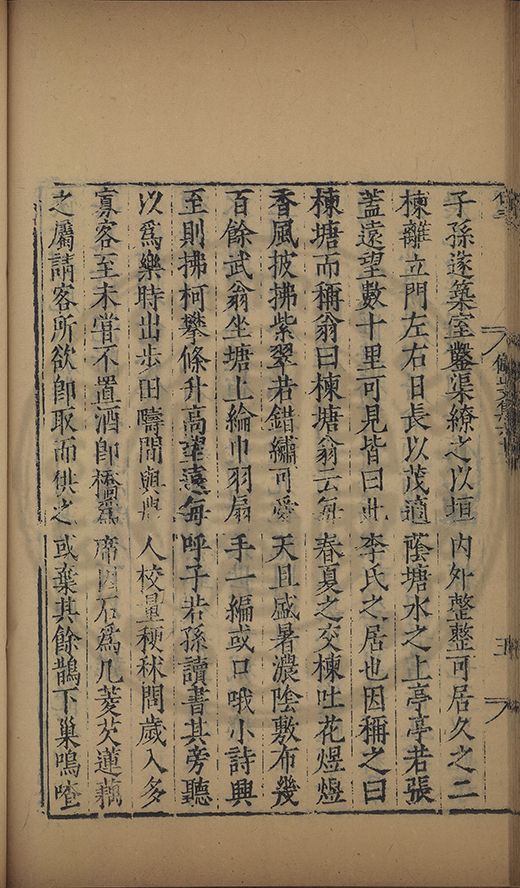 子孫遂築室鑿渠繚之以垣內外整整可居久之二
楝離立門左右日長以茂適蔭塘水之上亭亭若張
蓋遠望數十里可見皆曰此李氏之居也因稱之曰
楝塘而稱翁曰楝塘翁云每春夏之交楝吐花煜煜
香風披拂紫翠若錯繡可愛天且盛暑濃陰敷布幾
百餘武翁坐塘上綸巾羽扇手一編或口哦小詩興
至則拂柯攀條升高望遠每呼子若孫讀書其旁聽
以為樂時出步田疇間與農人校量稉秫間歲入多
寡客至未嘗不置酒即橋為席因石為几菱芡蓮藕
之屬請客所欲卽取而供之或棄其餘鵲下巢鳴喳
五